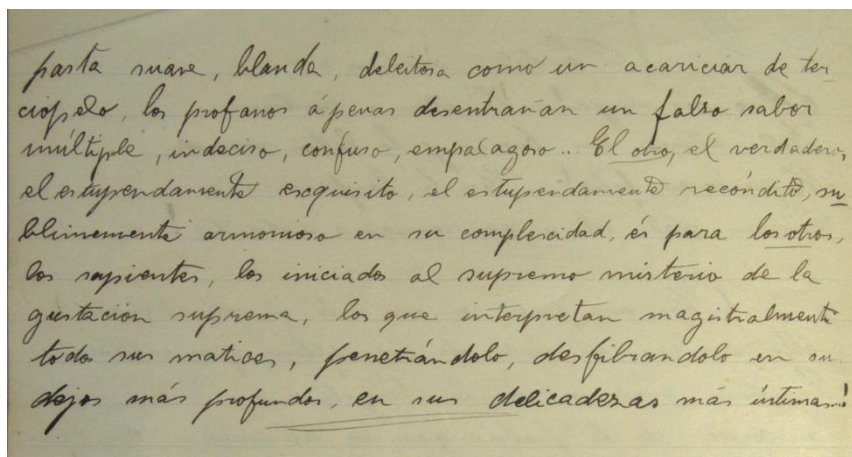 pasta suave, blanda, deleitosa como un acariciar de ter
ciopelo, los profanos ápenas desentrañan un falso sabor
múltiple, indeciso, confuso, empalagoso... El otro, el verdadero,
el estupendamente escquisito, el estupendamente recóndito, su
blimemente armonioso en su complescidad, és para los otros,
los sapientes, los iniciados al supremo misterio de la
gustación suprema, los que interpretan magistralmente
todos sus matices, penetrándolo, desfibrandolo en sus
dejos más profundos, en sus delicadezas más íntimas!